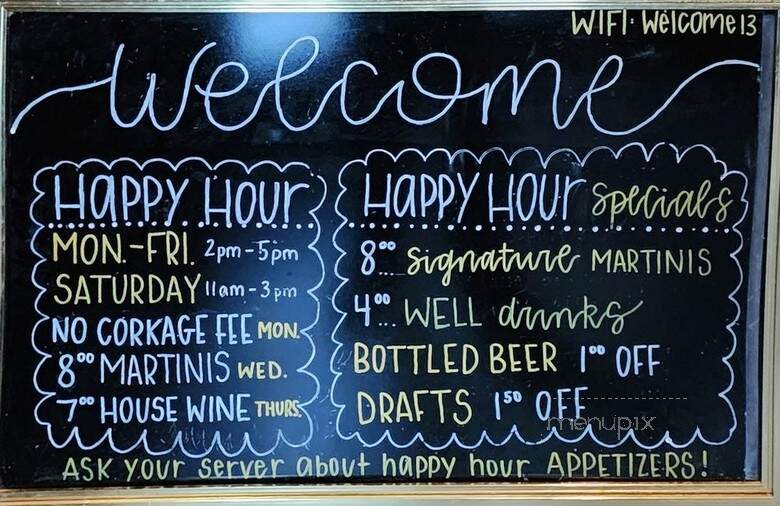 WIFI: Welcome13
Welcome
HAPPY HOUR
MON.-FRI. 2pm-5pm
SATURDAY 11am-3pm
NO CORKAGE FEE MON.
8⁰⁰ MARTINIS WED.
7⁰⁰ HOUSE WINE THURS.
HAPPY HOUR specials
8⁰⁰... signature MARTINIS
4⁰⁰... WELL drinks
BOTTLED BEER 1⁰⁰ OFF
DRAFTS 1⁵⁰ OFF
menupix
ASK your server about happy hour APPETIZERS!